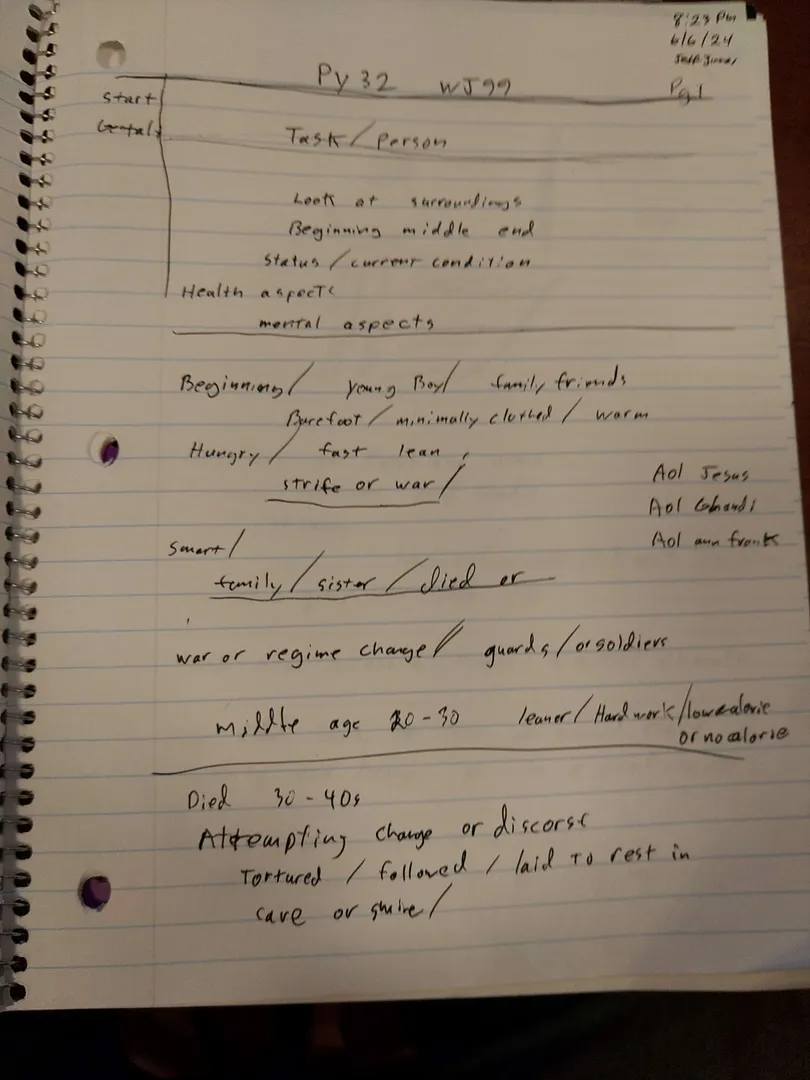 8:23 Pm
6/6/24
Py 32 WJ99
Pg 1
Start
Task/Person
Look at surroundings
Beginning middle end
Status / current condition
Health aspects
mental aspects
Beginning/ young Boy/ family friends
Barefoot / minimally clothed / warm
Hungry / fast lean,
strife or war /
Aol Jesus
Aol Ghandi
Aol ann frank
Smart/
family / sister / died or
war or regime change / guards / or soldiers
middle age 20-30 leaner / Hard work / low calorie
or no calorie
Died 30-40s
Attempting change or discorse
Tortured / followed / laid to rest in
cave or shire /